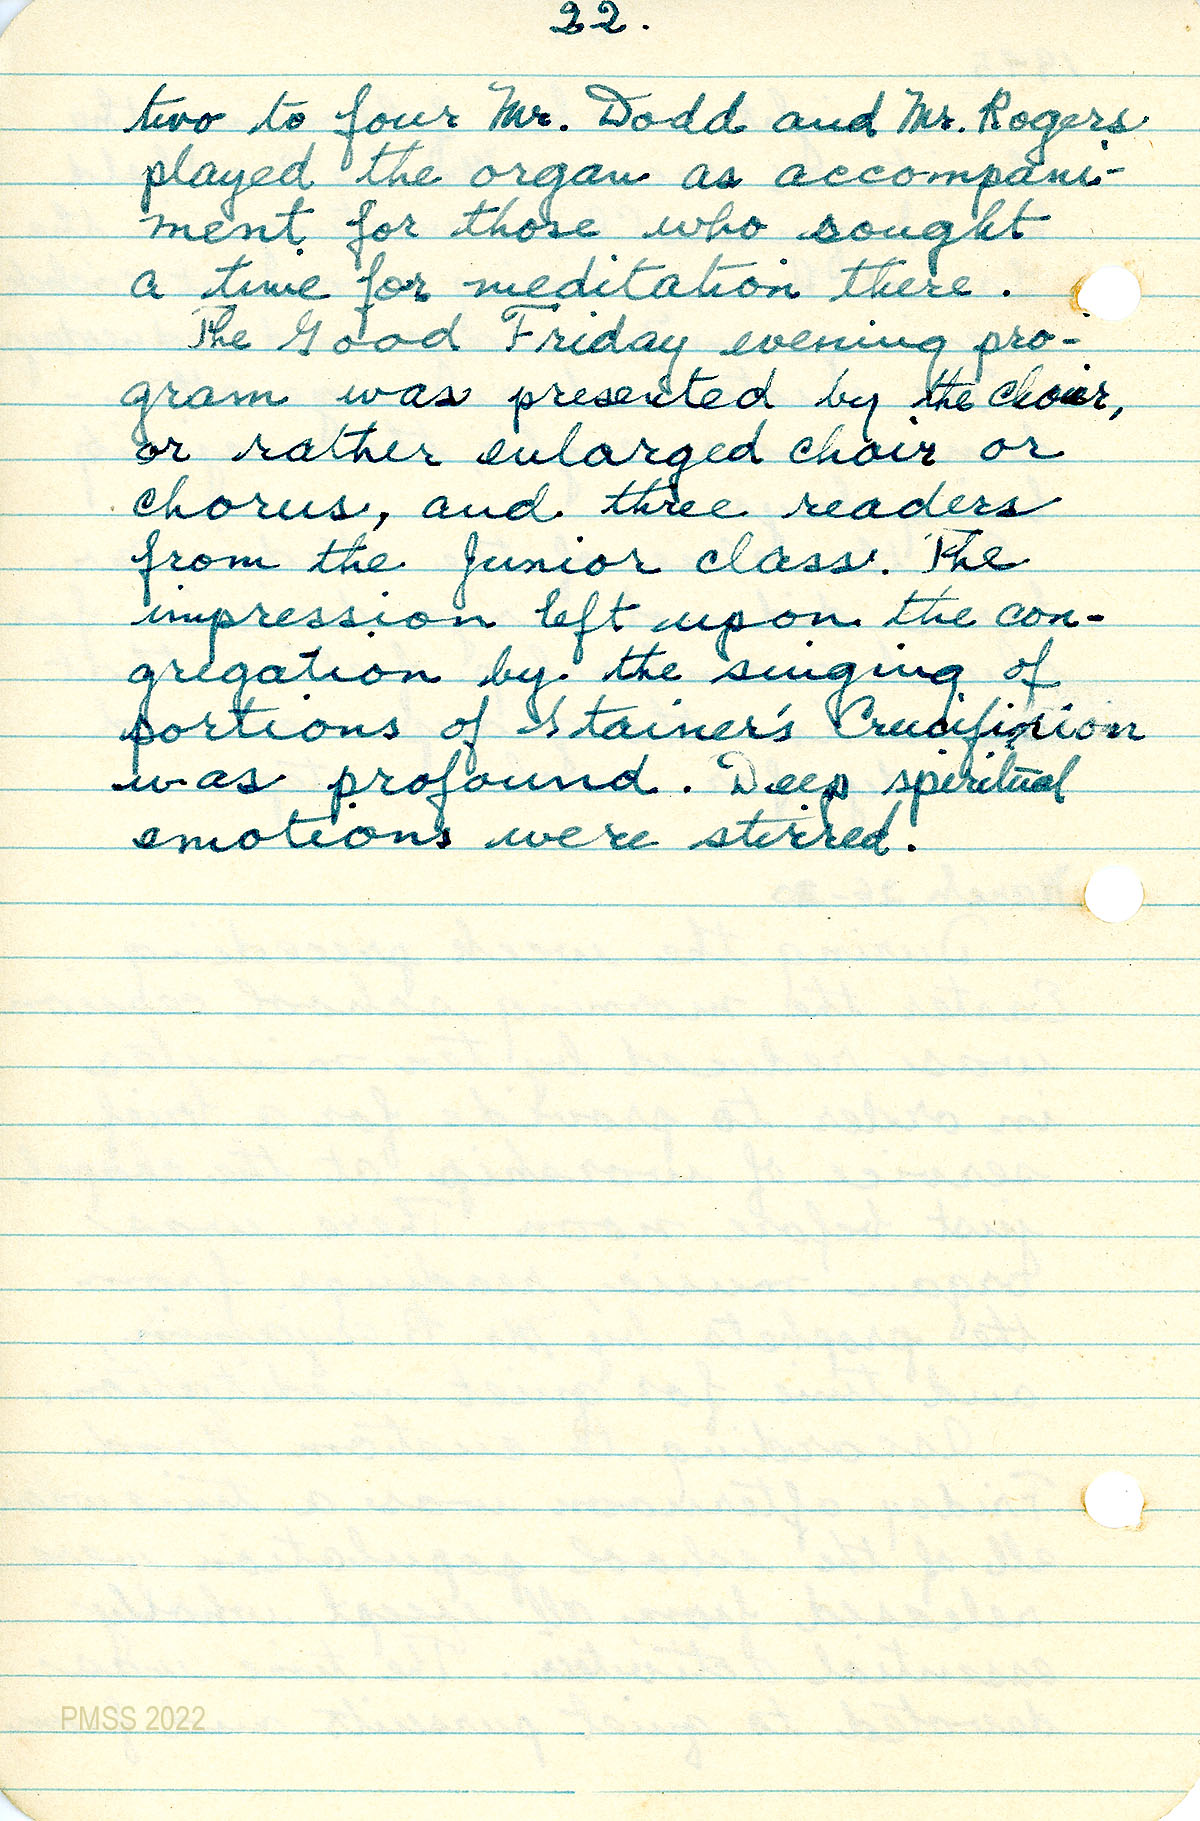 22.
two to four Mr. Dodd and Mr. Rogers
played the organ as accompani-
ment for those who sought
a time for meditation there.
The Good Friday evening pro-
gram was presented by the choir,
or rather enlarged choir or
chorus, and three readers
from the Junior class. The
impression left upon the con-
gregation by the singing of
portions of Stainer's Crucifixion
was profound. Deep spiritual
emotions were stirred.
PMSS 2022